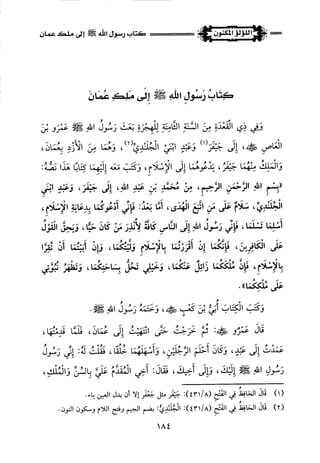 اللؤلؤ المكنون
كتاب رسول الله ﷺ إلى ملك عمان
كِتَابُ رَسُولِ اللهِ ﷺ إلَى مَلِكِ عُمَانَ
وَفِي ذِي القَعْدَةِ مِنَ السَّنَةِ الثَّامِنَةِ لِلْهِجْرَةِ بَعَثَ رَسُولُ اللهِ ﷺ عَمْرَو بْنَ
العَاصِ ﷺ، إلَى جَيْفَرَ(١) وَعَبْدِ ابْنَيِ الجُلُنْدَى(٢)، وَهُمَا مِنَ الأَزْدِ بِعُمَانَ،
وَالْمَلِكُ مِنْهُمَا جَيْفَرُ، يَدْعُوهُمَا إلَى الإِسْلَامِ، وَكَتَبَ مَعَهُ إلَيْهِمَا كِتَابًا هَذَا نَصُّهُ:
«بِسْمِ اللهِ الرَّحْمَنِ الرَّحِيمِ، مِنْ مُحَمَّدِ بْنِ عَبْدِ اللهِ، إلَى جَيْفَرَ، وَعَبْدِ ابْنَيِ
الجُلُنْدَى، سَلَامٌ عَلَى مَنِ اتَّبَعَ الهُدَى، أَمَّا بَعْدُ: فَإِنِّي أَدْعُوكُمَا بِدِعَايَةِ الإِسْلَامِ،
أَسْلِمَا تَسْلَمَا، فَإِنِّي رَسُولُ اللهِ إلَى النَّاسِ كَافَّةً لِأُنْذِرَ مَنْ كَانَ حَيًّا، وَيَحِقَّ القَوْلُ
عَلَى الكَافِرِينَ، فَإِنَّكُمَا إنْ أَقْرَرْتُمَا بِالإِسْلَامِ وَلَّيْتُكُمَا، وَإِنْ أَبَيْتُمَا أَنْ تُقِرَّا
بِالإِسْلَامِ، فَإِنَّ مُلْكَكُمَا زَائِلٌ عَنْكُمَا، وَخَيْلِي تَحُلُّ بِسَاحَتِكُمَا، وَتَظْهَرُ نُبُوَّتِي
عَلَى مُلْكِكُمَا».
وَكَتَبَ الكِتَابَ أُبَيُّ بْنُ كَعْبٍ ﷺ، وَخَتَمَهُ رَسُولُ اللهِ ﷺ.
قَالَ عَمْرٌو ﷺ: ثُمَّ خَرَجْتُ حَتَّى انْتَهَيْتُ إلَى عُمَانَ، فَلَمَّا قَدِمْتُهَا،
عَمَدْتُ إلَى عَبْدٍ، وَكَانَ أَحْلَمَ الرَّجُلَيْنِ، وَأَسْهَلَهُمَا خُلُقًا، فَقُلْتُ لَهُ: إنِّي رَسُولُ
رَسُولِ اللهِ ﷺ إلَيْكَ، وَإِلَى أَخِيكَ، فَقَالَ: أَخِي المُقَدَّمُ عَلَيَّ بِالسِّنِّ وَالمُلْكِ،
(١) قال الحَافِظُ في الفَتْحِ (٤٣١/٨): جَيْفَر مثل جَعْفَر إلا أن بدل العين ياء.
(٢) قال الحَافِظُ في الفَتْحِ (٤٣١/٨): الجُلُنْدَى: بضم الجيم وفتح اللام وسكون النون.
١٨٤